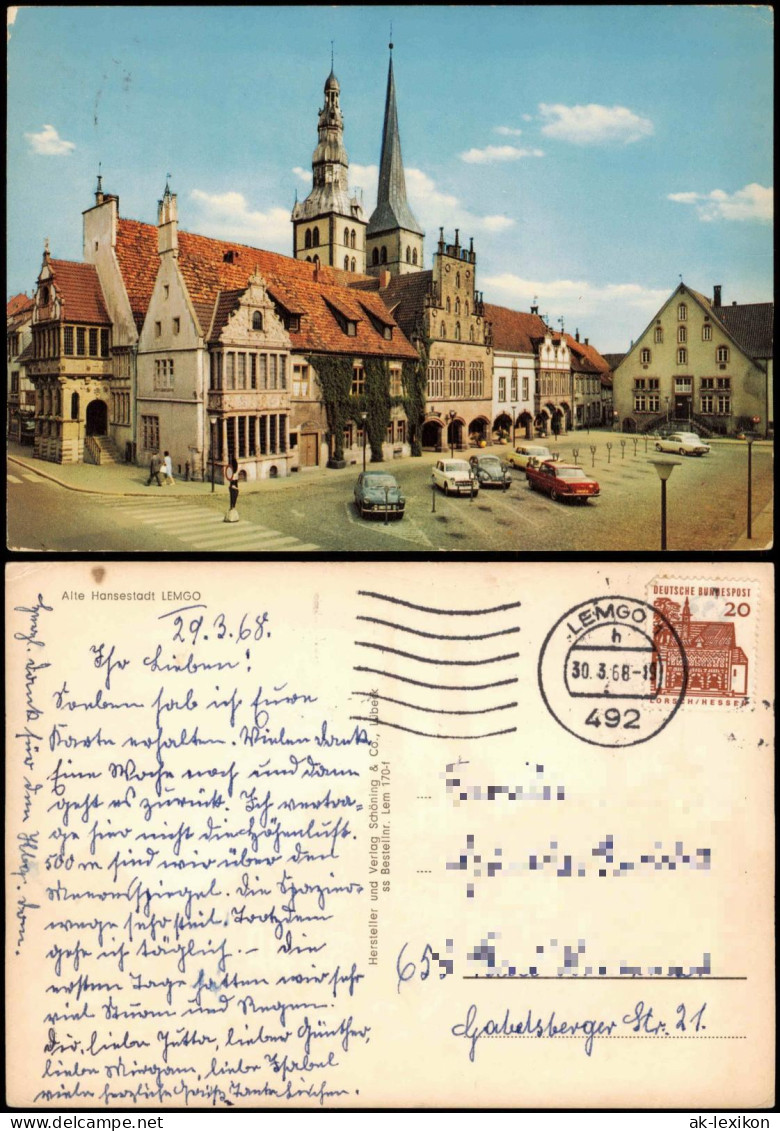 Alte Hansestadt LEMGO
29.3.68.
Ihr Lieben!
Soeben hab ich Eure
Karte erhalten. Vielen Dank.
Eine Woche noch und dann
geht es zurück. Ich vertra-
ge hier nicht die Höhenluft.
500 m sind wir über den
Meeresspiegel. Die Spazier-
wege sehr steil. Trotzdem
gehe ich täglich. - Die
ersten Tage hatten wir sehr
viel Sturm und Regen.
Dir, liebe Jutta, lieber Günther,
liebe Mirjam, liebe Isabel
viele herzliche Grüße Tante Lischen.
Herzl. Dank für den
Hersteller und Verlag Schöning & Co., Lübeck
ss Bestellnr. Lem 170-f
LEMGO
h
30.3.68-19
492
DEUTSCHE BUNDESPOST
20
LORSCH/HESSEN
Gabelsberger Str. 21.
ak-lexikon